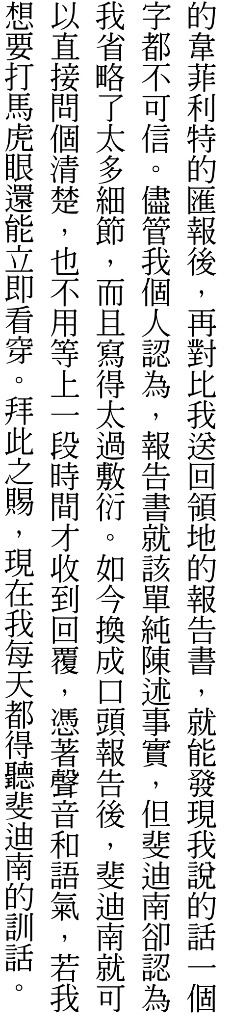 的韋菲利特的匯報後，再對比我送回領地的報告書，就能發現我說的話一個
字都不可信。儘管我個人認為，報告書就該單純陳述事實，但斐迪南卻認為
我省略了太多細節，而且寫得太過敷衍。如今換成口頭報告後，斐迪南就可
以直接問個清楚，也不用等上一段時間才收到回覆，憑著聲音和語氣，若我
想要打馬虎眼還能立即看穿。拜此之賜，現在我每天都得聽斐迪南的訓話。